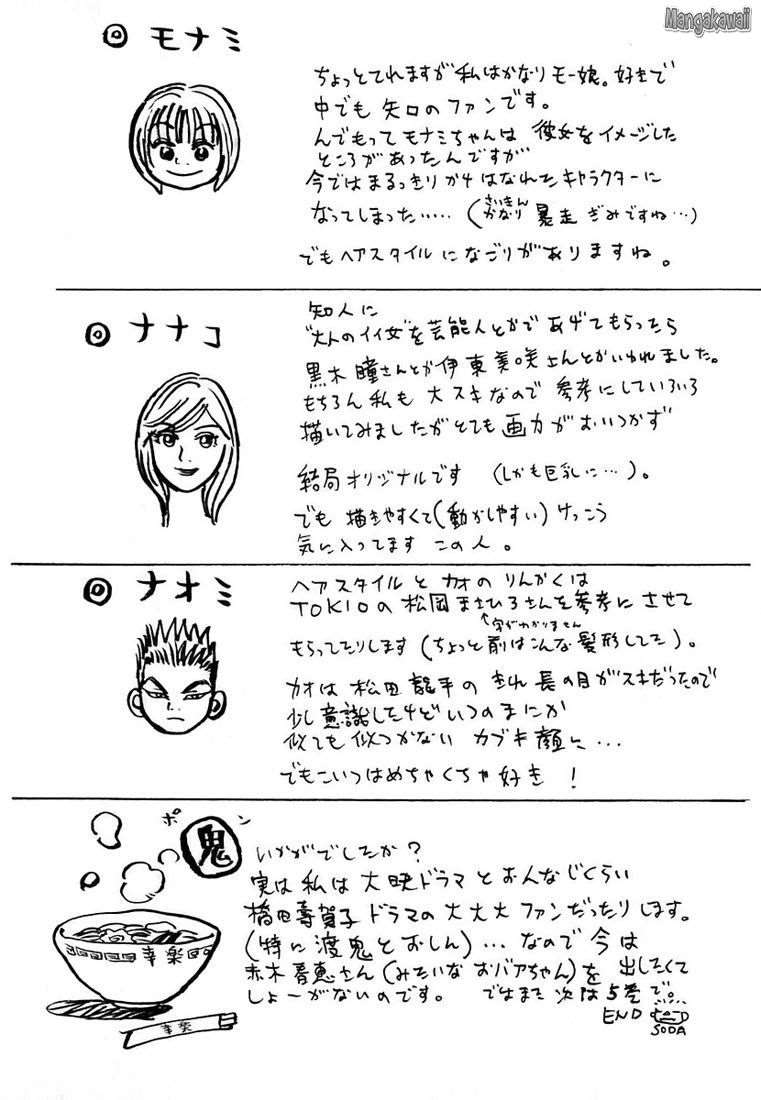 Mangakawaii
◎ モナミ
ちょっとてれますが私はかなりモー娘。好きで
中でも矢口のファンです。
んでもってモナミちゃんは 彼女をイメージした
ところがあったんですが
今ではまるっきりかけはなれたキャラクターに
なってしまった‥‥‥(さいきんかなり 暴走ぎみですね…)
でもヘアスタイルになごりがありますね。
◎ ナナコ
知人に
"大人のイイ女"を芸能人とかであげてもらったら
黒木瞳さんとか伊東美咲さんとかいわれました。
もちろん私も大スキなので 参考にしていろいろ
描いてみましたがとても画力がおいつかず
結局オリジナルです (しかも巨乳に…)。
でも描きやすくて(動かしやすい)けっこう
気に入ってます この人。
◎ ナオミ
ヘアスタイルとカオのりんかくは
TOKIOの松岡まさひろさんを参考にさせて
↑字がわかりません
もらってたりします(ちょっと前はこんな髪形してた)。
カオは松田龍平のきれ長の目がスキだったので
少し意識したけどいつのまにか
似ても似つかない カブキ顔に…
でもこいつはめちゃくちゃ好き!
ポン
鬼
いかがでしたか?
実は私は大映ドラマとおんなじくらい
橋田壽賀子ドラマの大大大ファンだったりします。
(特に渡鬼とおしん)…なので今は
赤木春恵さん(みたいなおバアちゃん)を出したくて
しょーがないのです。 ではまた次は5巻で。
END
SODA
幸楽
幸楽